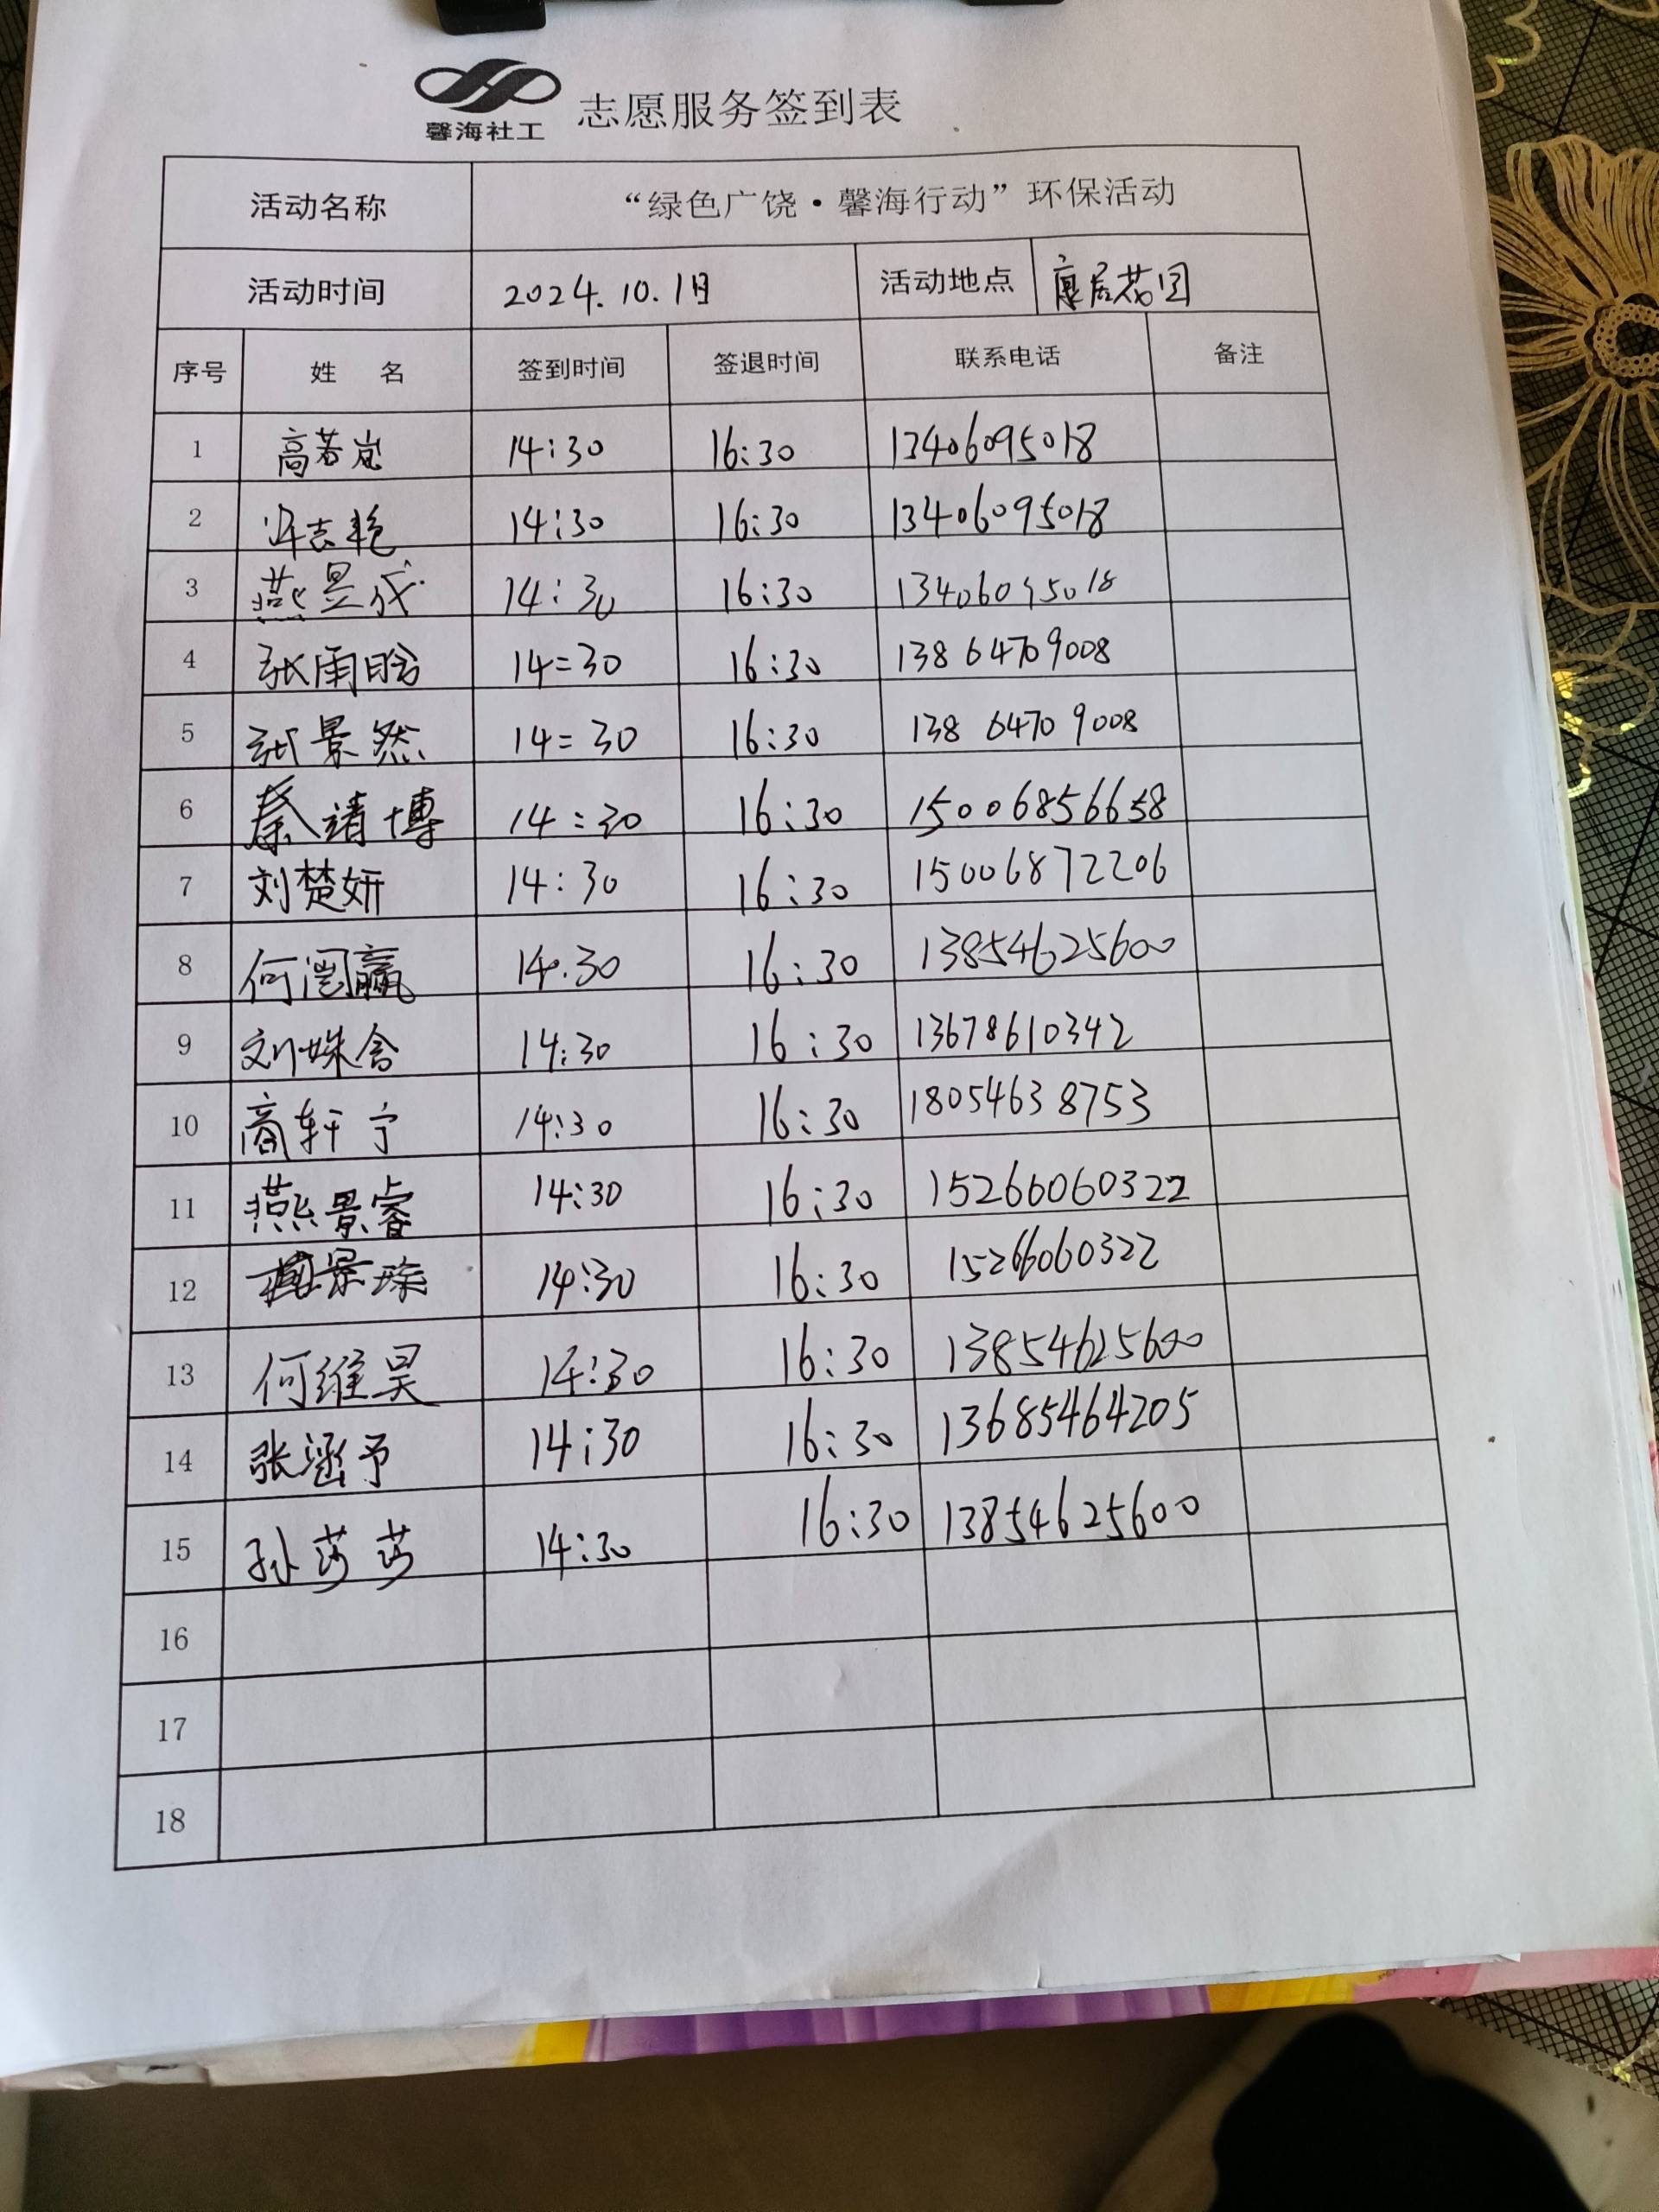 馨海社工 志愿服务签到表
活动名称 “绿色广饶·馨海行动”环保活动
活动时间 2024.10.1日 活动地点 康居花园
序号 姓 名 签到时间 签退时间 联系电话 备注
1 高若岚 14:30 16:30 13406095018
2 14:30 16:30 13406095018
3 燕昱成 14:30 16:30 13406095018
4 张雨晗 14=30 16:30 13864709008
5 张景然 14=30 16:30 138 6470 9008
6 秦靖博 14:30 16:30 15006856658
7 刘楚妍 14:30 16:30 15006872206
8 何闰赢 14.30 16:30 13854625600
9 刘姝含 14:30 16:30 13678610342
10 商轩宁 14:30 16:30 18054638753
11 燕景睿 14:30 16:30 15266060322
12 14:30 16:30 15266060322
13 何维昊 14:30 16:30 13854625600
14 张涵予 14:30 16:30 13685464205
15 孙莎莎 14:30 16:30 13854625600
16
17
18